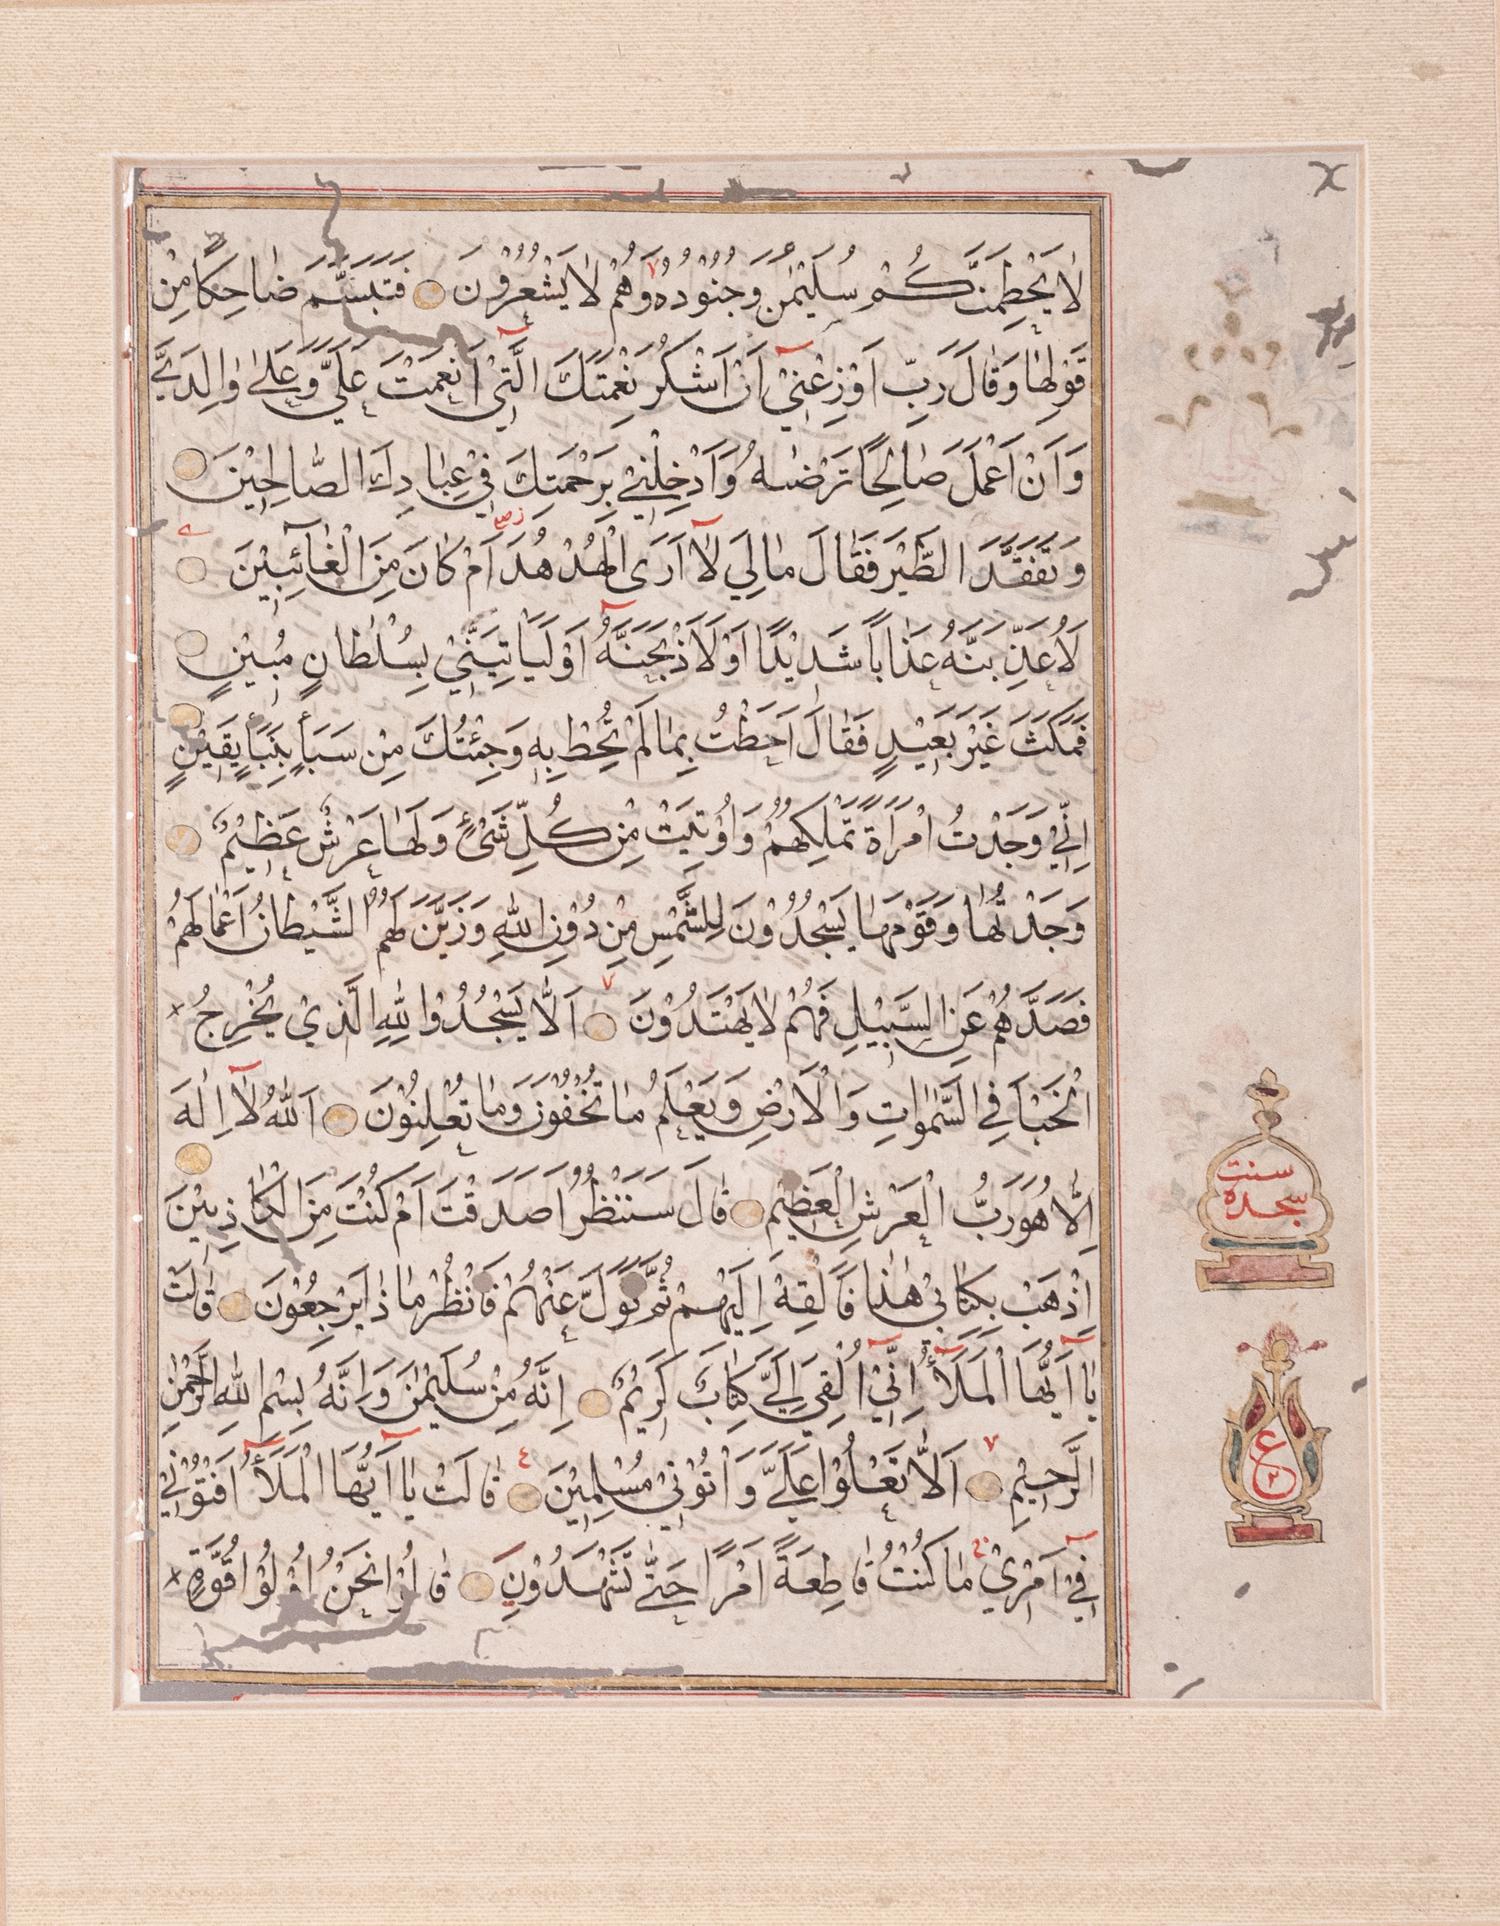 لَا يَحْطِمَنَّكُمْ سُلَيْمٰنُ وَجُنُوْدُهُ وَهُمْ لَا يَشْعُرُوْنَ فَتَبَسَّمَ ضَاحِكًا مِنْ
قَوْلِهَا وَقَالَ رَبِّ اَوْزِعْنِيْ اَنْ اَشْكُرَ نِعْمَتَكَ الَّتِيْ اَنْعَمْتَ عَلَيَّ وَعَلٰى وَالِدَيَّ
وَاَنْ اَعْمَلَ صَالِحًا تَرْضٰىهُ وَاَدْخِلْنِيْ بِرَحْمَتِكَ فِيْ عِبَادِكَ الصَّالِحِيْنَ
وَتَفَقَّدَ الطَّيْرَ فَقَالَ مَالِيَ لَا اَرَى الْهُدْهُدَ اَمْ كَانَ مِنَ الْغَآئِبِيْنَ
لَاُعَذِّبَنَّهُ عَذَابًا شَدِيْدًا اَوْ لَاَذْبَحَنَّهُ اَوْ لَيَاْتِيَنِّيْ بِسُلْطَانٍ مُبِيْنٍ
فَمَكَثَ غَيْرَ بَعِيْدٍ فَقَالَ اَحَطْتُ بِمَا لَمْ تُحِطْ بِهٖ وَجِئْتُكَ مِنْ سَبَأٍ بِنَبَأٍ يَقِيْنٍ
اِنِّيْ وَجَدْتُ امْرَاَةً تَمْلِكُهُمْ وَاُوْتِيَتْ مِنْ كُلِّ شَيْءٍ وَلَهَا عَرْشٌ عَظِيْمٌ
وَجَدْتُهَا وَقَوْمَهَا يَسْجُدُوْنَ لِلشَّمْسِ مِنْ دُوْنِ اللّٰهِ وَزَيَّنَ لَهُمُ الشَّيْطَانُ اَعْمَالَهُمْ
فَصَدَّهُمْ عَنِ السَّبِيْلِ فَهُمْ لَا يَهْتَدُوْنَ اَلَّا يَسْجُدُوْا لِلّٰهِ الَّذِيْ يُخْرِجُ
الْخَبْاَ فِي السَّمٰوٰاتِ وَالْاَرْضِ وَيَعْلَمُ مَا تُخْفُوْنَ وَمَا تُعْلِنُوْنَ اَللّٰهُ لَا اِلٰهَ
اِلَّا هُوَ رَبُّ الْعَرْشِ الْعَظِيْمِ قَالَ سَنَنْظُرُ اَصَدَقْتَ اَمْ كُنْتَ مِنَ الْكَاذِبِيْنَ
سنت
سجده
اِذْهَبْ بِكِتَابِيْ هٰذَا فَاَلْقِهْ اِلَيْهِمْ ثُمَّ تَوَلَّ عَنْهُمْ فَانْظُرْ مَاذَا يَرْجِعُوْنَ قَالَتْ
يَا اَيُّهَا الْمَلَأُ اِنِّيْ اُلْقِيَ اِلَيَّ كِتَابٌ كَرِيْمٌ اِنَّهُ مِنْ سُلَيْمٰنَ وَاِنَّهُ بِسْمِ اللّٰهِ الرَّحْمٰنِ
ع
الرَّحِيْمِ اَلَّا تَعْلُوْا عَلَيَّ وَاْتُوْنِيْ مُسْلِمِيْنَ قَالَتْ يَا اَيُّهَا الْمَلَأُ اَفْتُوْنِيْ
فِيْ اَمْرِيْ مَا كُنْتُ قَاطِعَةً اَمْرًا حَتّٰى تَشْهَدُوْنِ قَالُوْا نَحْنُ اُولُوْا قُوَّةٍ